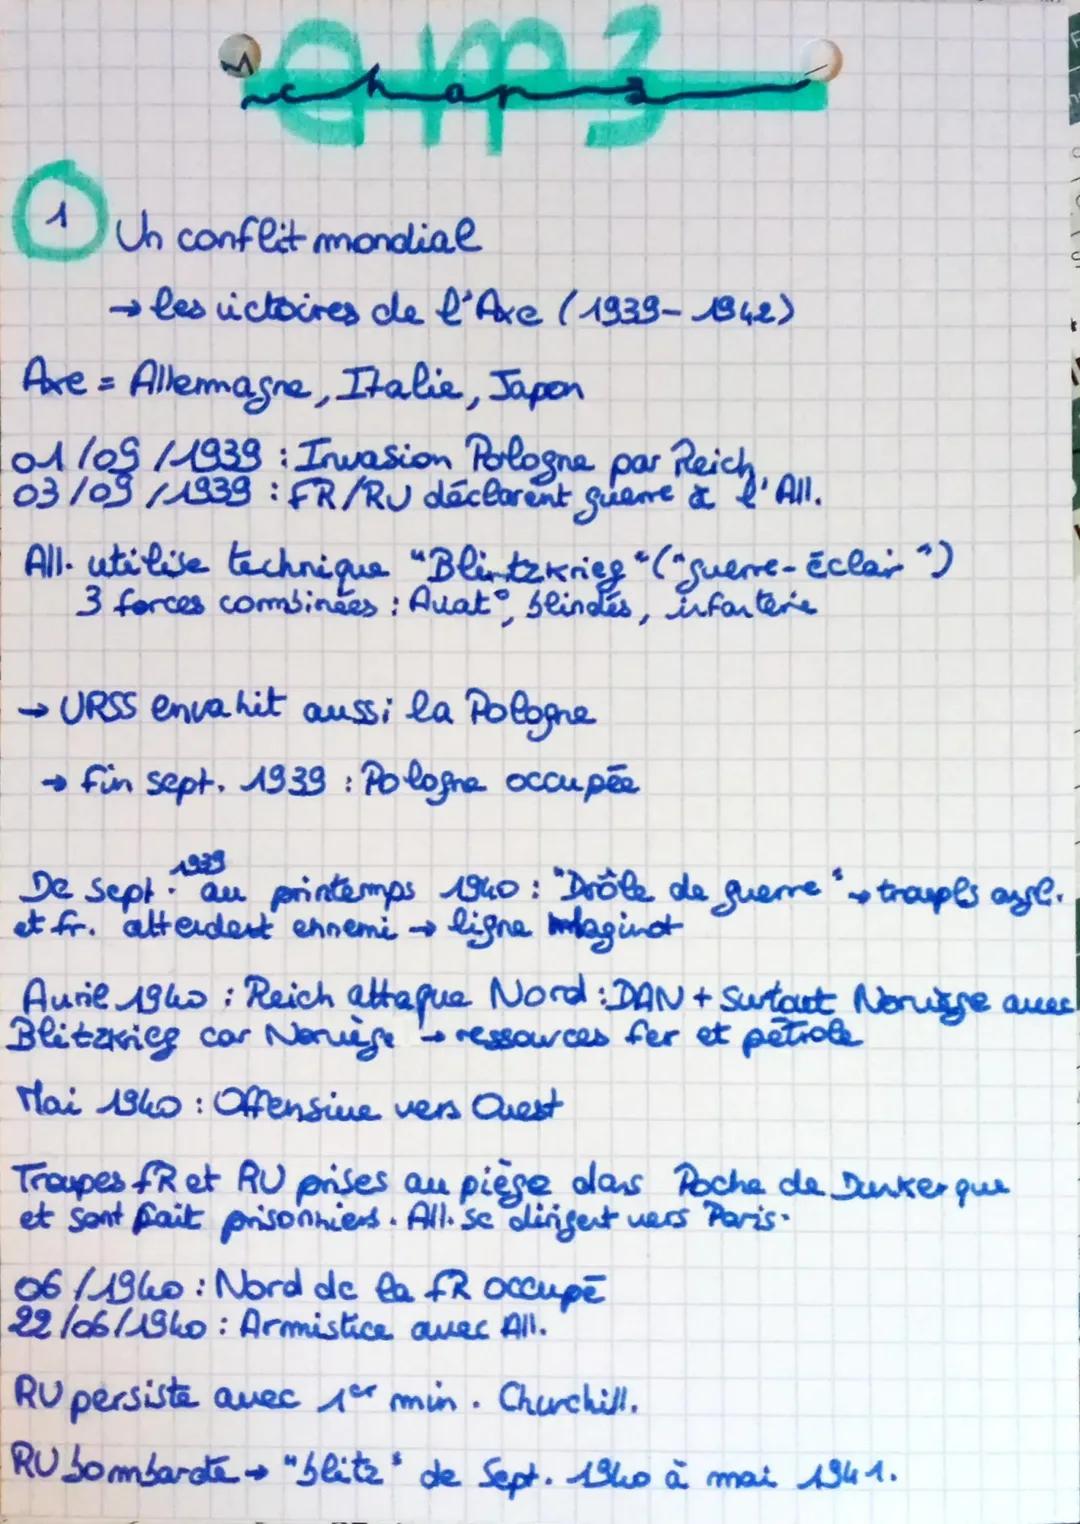 emc3
chap 3
1 Un conflit mondial
→ les victoires de l'Axe (1939-1942)
Axe = Allemagne, Italie, Japon
01/09/1939 : Invasion Pologne par Reich
03/09/1939 : FR/RU déclarent guerre à l'All.
All. utilise technique "Blintzkrieg" ("guerre-éclair")
3 forces combinées : Aviat°, blindés, infanterie
→ URSS envahit aussi la Pologne
→ fin sept. 1939 : Pologne occupée
De sept. 1939 au printemps 1940 : "Drôle de guerre" → troupes angl.
et fr. attendent ennemi → ligne Maginot
Avril 1940 : Reich attaque Nord : DAN + surtout Norvège avec
Blitzkrieg car Norvège → ressources fer et pétrole
Mai 1940 : Offensive vers Ouest
Troupes FR et RU prises au piège dans Poche de Dunkerque
et sont fait prisonniers. All. se dirigent vers Paris.
06/1940 : Nord de la FR occupé
22/06/1940 : Armistice avec All.
RU persiste avec 1er min. Churchill.
RU bombardé → "blitz" de Sept. 1940 à mai 1941.